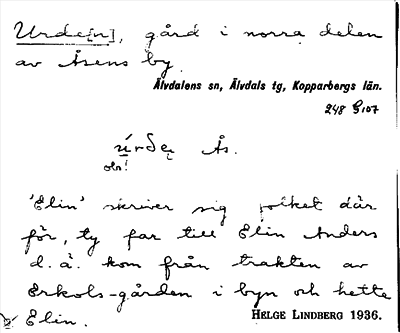 Urde[n], gård i norra delen
av Åsens by
Älvdalens sn, Älvdals tg, Kopparbergs län.
248 G:107
Ås.
obs!
'Elin' skriver sig folket där
för, ty far till Elin Anders
d.ä. kom från trakten av
Erkols-gården i byn och hette
Elin.
HELGE LINDBERG 1936.